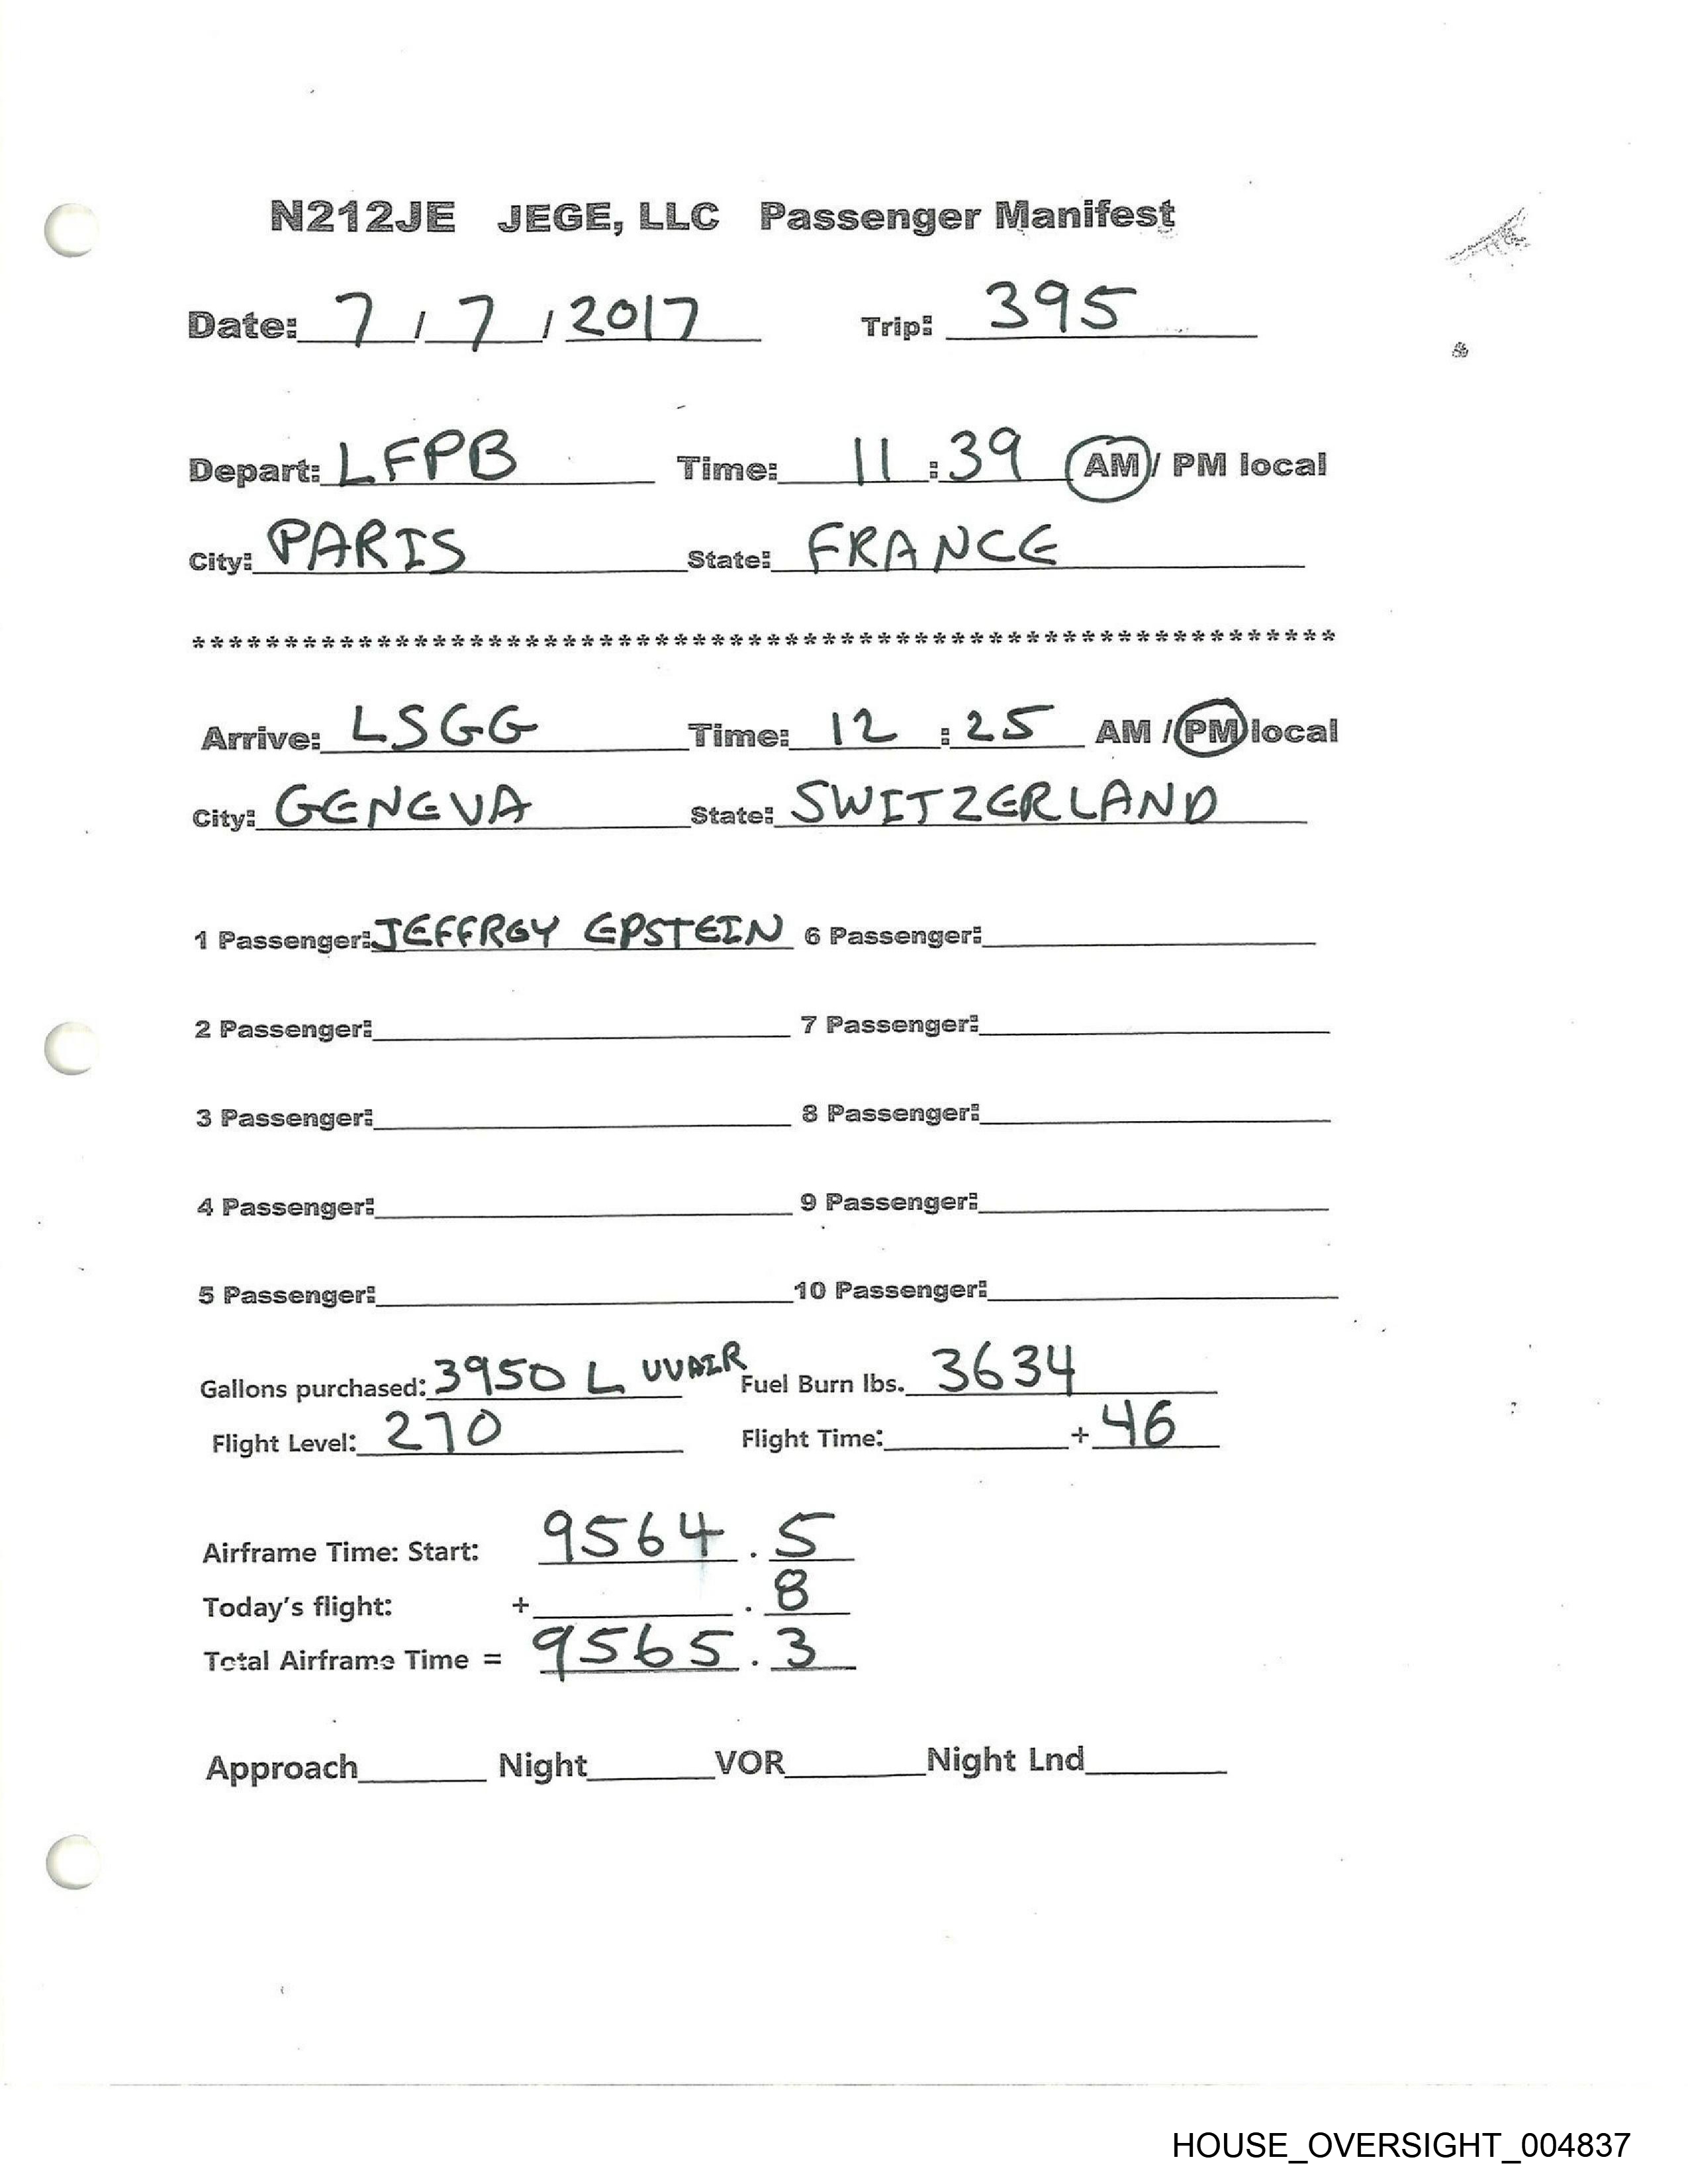 N212JE JEGE, LLC Passenger Manifest
Date: 7 / 7 / 2017 Trip: 395
Depart: LFPB Time: 11 : 39 AM / PM local
City: PARIS State: FRANCE
**************************************************************
Arrive: LSGG Time: 12 : 25 AM / PM local
City: GENEVA State: SWITZERLAND
1 Passenger: JEFFREY EPSTEIN 6 Passenger:
2 Passenger: 7 Passenger:
3 Passenger: 8 Passenger:
4 Passenger: 9 Passenger:
5 Passenger: 10 Passenger:
Gallons purchased: 3950 L UVAIR Fuel Burn lbs. 3634
Flight Level: 270 Flight Time: + 46
Airframe Time: Start: 9564 . 5
Today's flight: + . 8
Total Airframe Time = 9565 . 3
Approach Night VOR Night Lnd
HOUSE_OVERSIGHT_004837